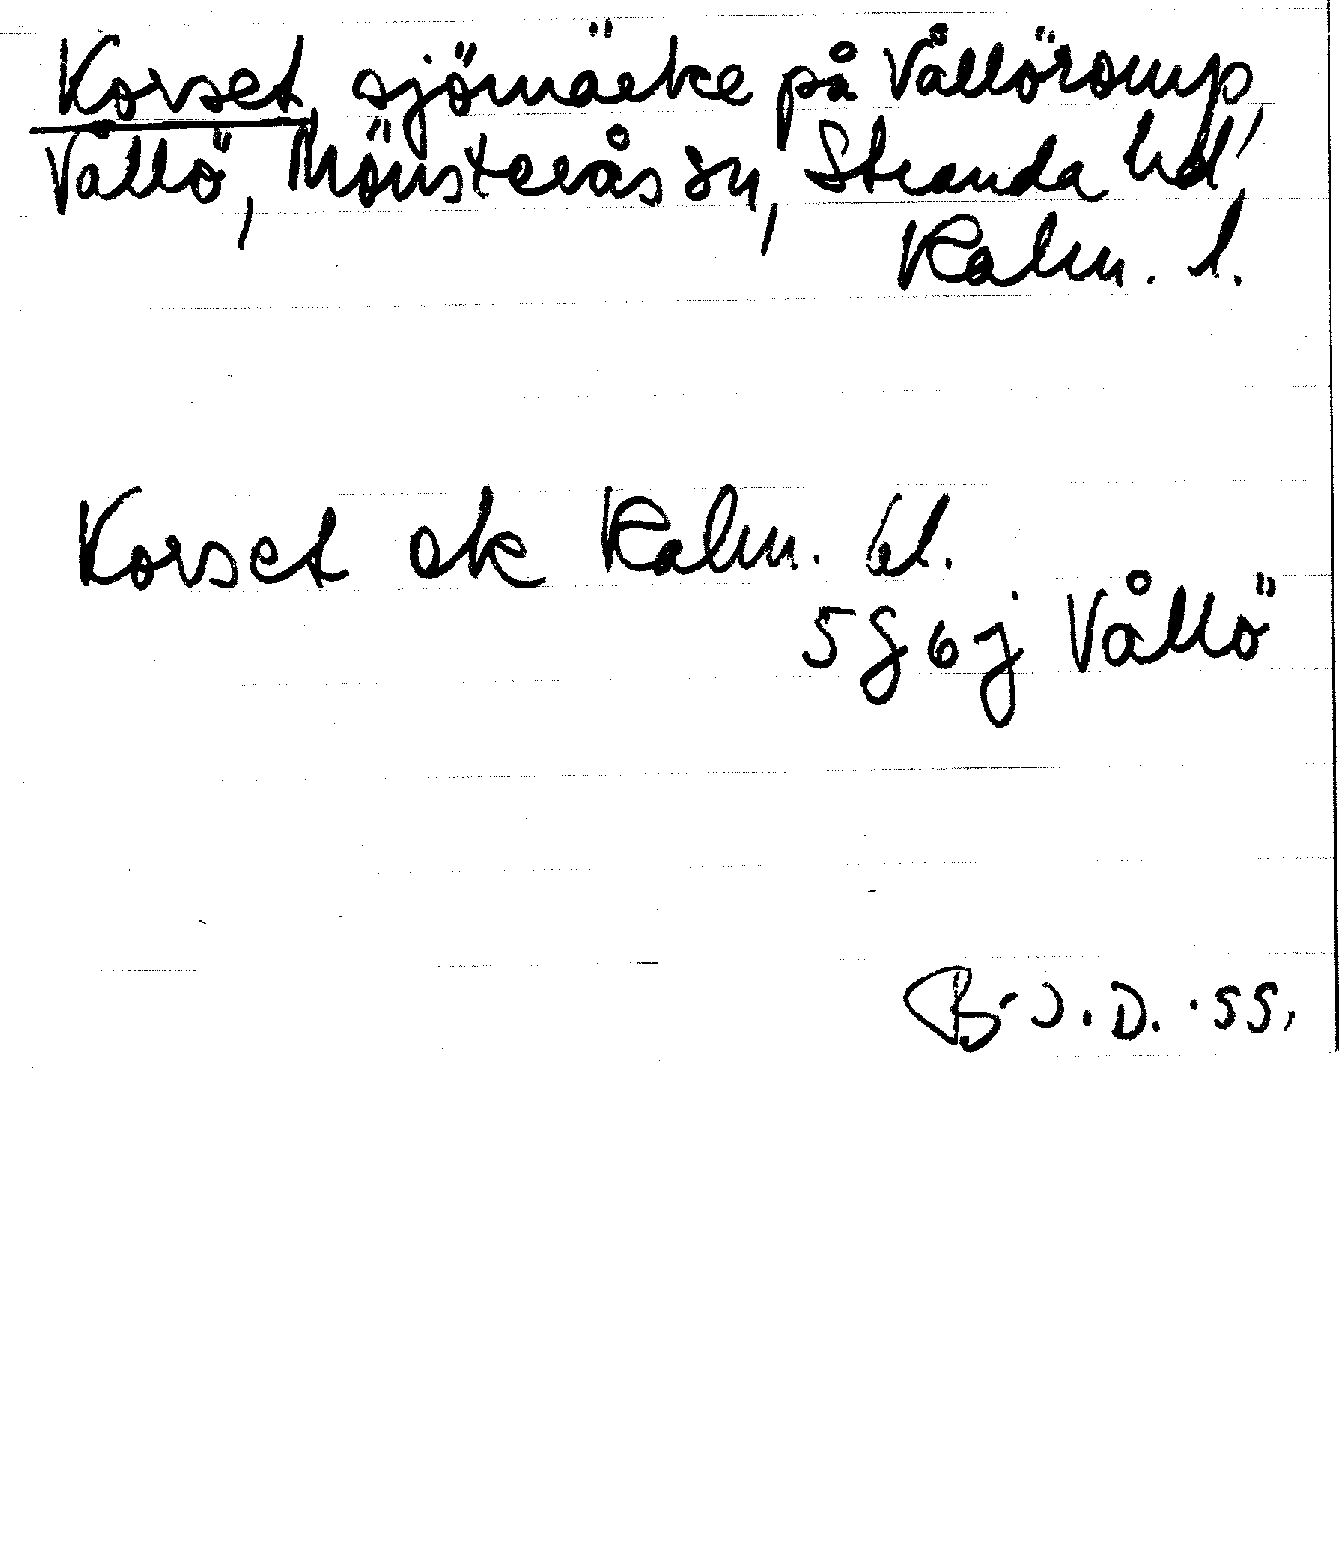 Korset, sjömärke på Vållöromp,
Vållö, Mönsterås sn, Stranda hd,
Kalm. l.
Korset ek Kalm. bl.
5 G 6 j Vållö
B-J.D. -55,